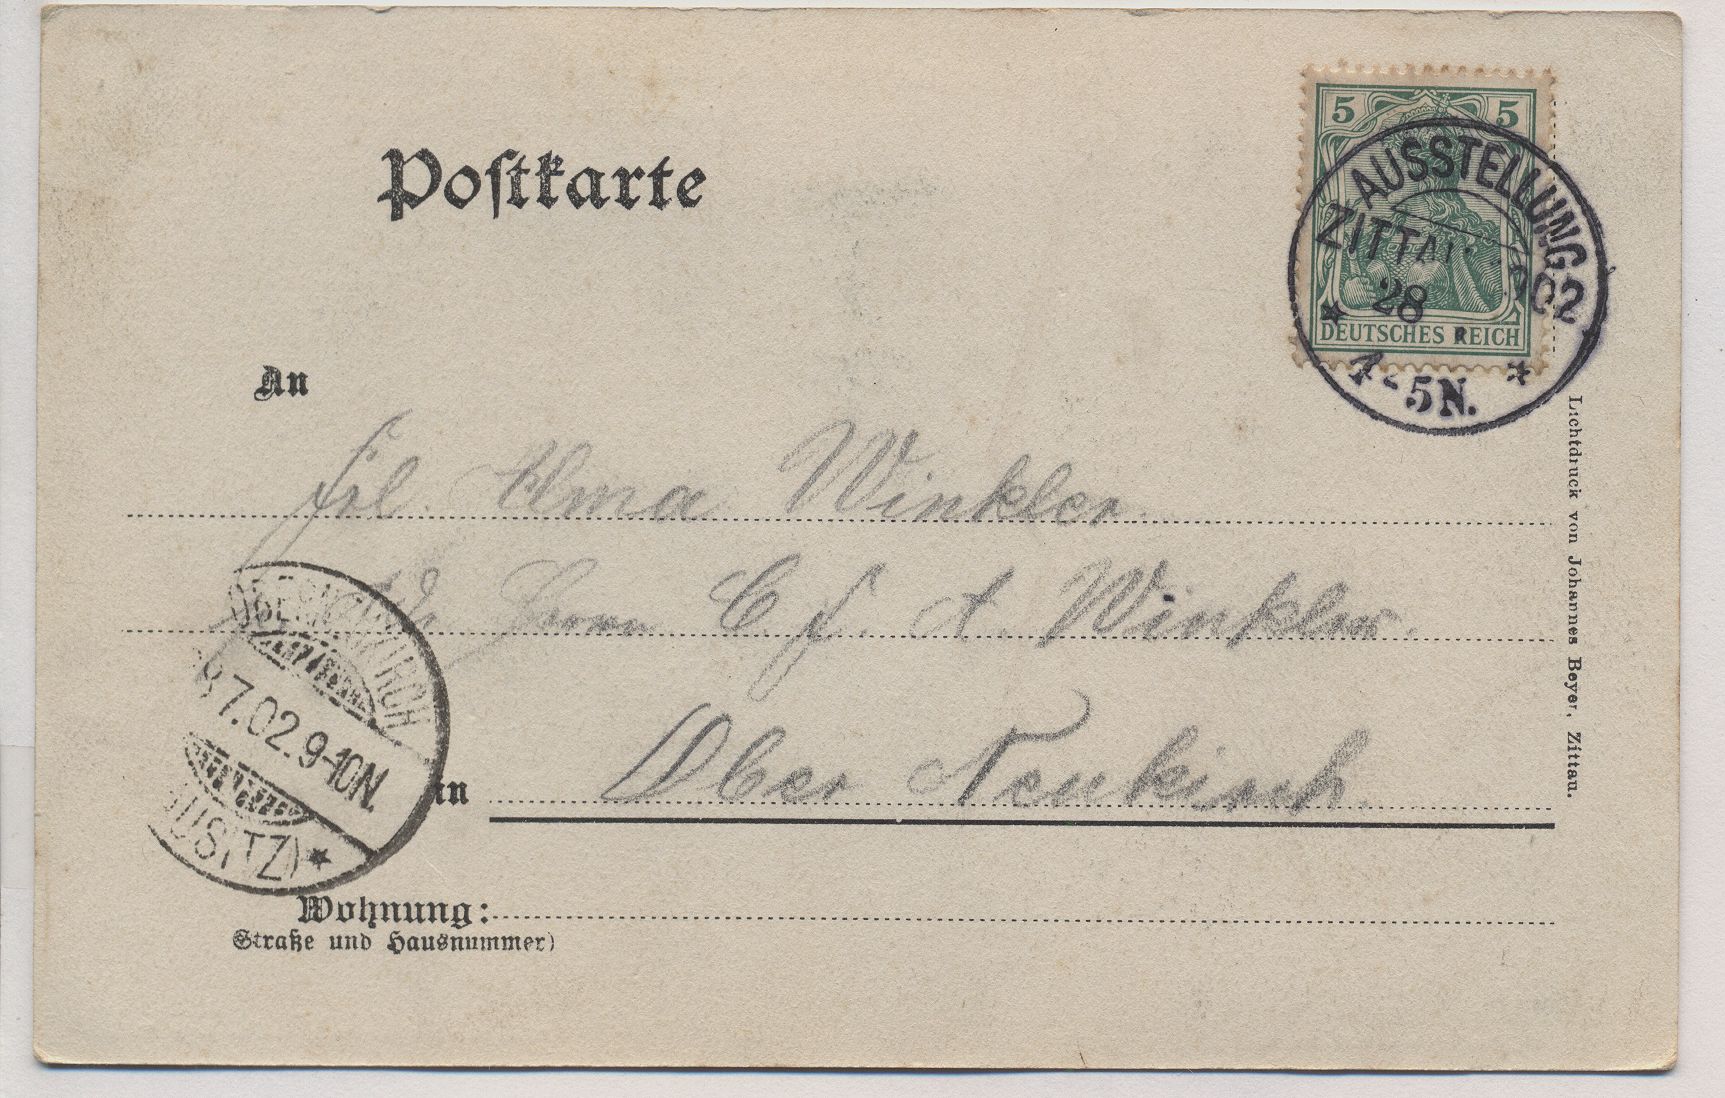 Postkarte
5 5
DEUTSCHES REICH
AUSSTELLUNG
ZITTAU 1902
28
4-5N.
An
Frl. Alma Winkler.
Herrn C. F. A. Winkler.
in Ober Neukirch.
OBERNEUKIRCH
7.02.9-10N.
(LAUSITZ)
Wohnung:
Straße und Hausnummer)
Lichtdruck von Johannes Beyer, Zittau.